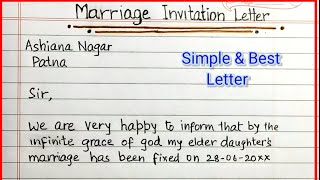 Marriage Invitation Letter
Ashiana Nagar
Patna
Simple & Best
Letter
Sir,
We are very happy to inform that by the
infinite grace of god my elder daughter's
marriage has been fixed on 28-06-20xx